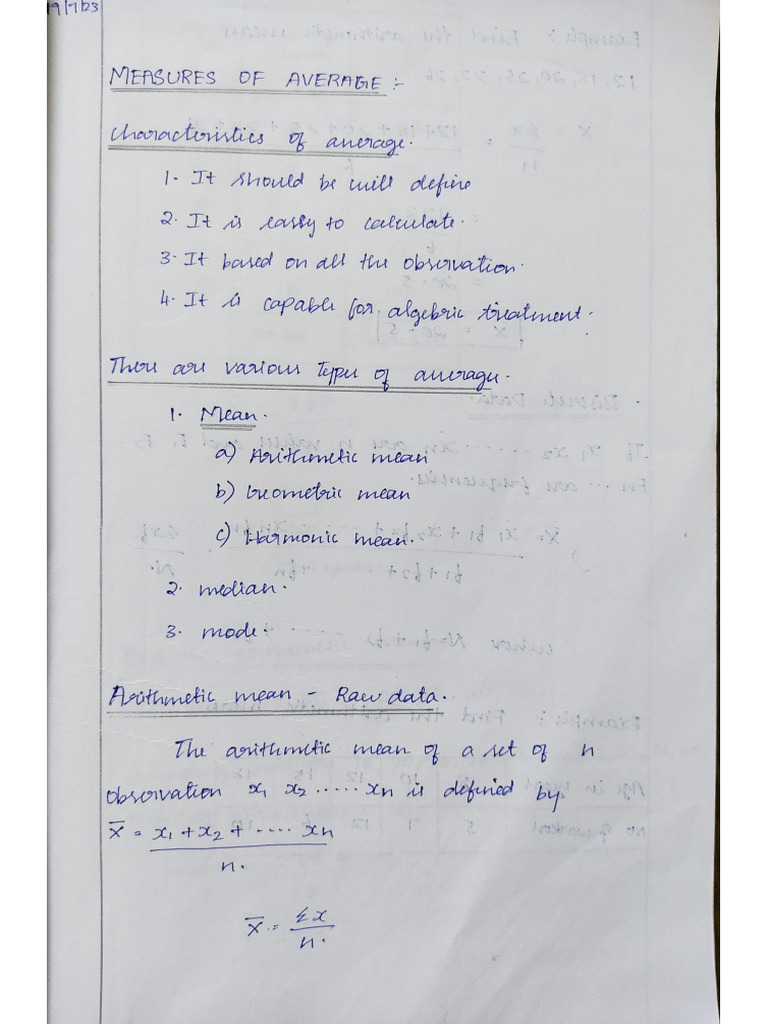 19/7/23
MEASURES OF AVERAGE :-
Characteristics of average.
1. It should be will define
2. It is easly to calculate.
3. It based on all the observation.
4. It is capable for algebric treatment.
There are various Types of average.
1. Mean.
a) Arithmetic mean
b) Geometric mean
c) Harmonic mean.
2. median.
3. mode.
Arithmetic mean - Raw data.
The arithmetic mean of a set of n
observation x1 x2 ..... xn is defined by
x̄ = x1 + x2 + ..... xn
n.
x̄ = Σx
n.